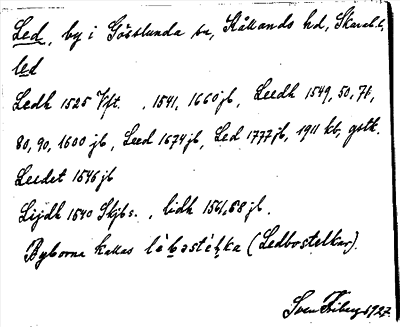 Led, by i Gösslunda sn, Kållands hd, Skarab. l.
led
Ledh 1525 Vft. , 1541, 1660 jb, Leedh 1549, 50, 71,
80, 90, 1600 jb, Leed 1674 jb, Led 1777 jb, 1911 kb, gstk.
Leedet 1546 jb
Lijdh 1540 Skjbs. , lidh 1541, 68 jb.
Byborna kallas (Ledbostelkar).
Sven Friberg 1927.